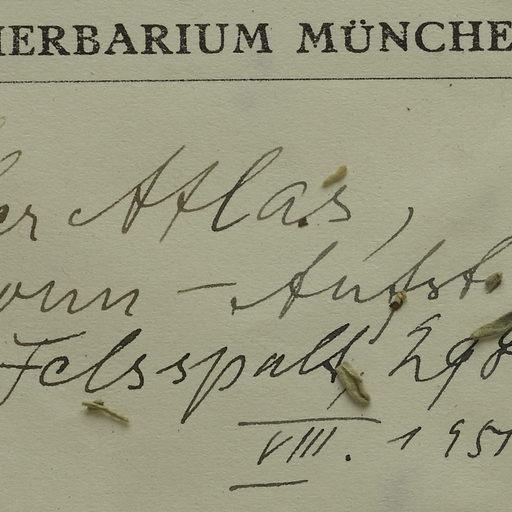 HERBARIUM MÜNCHE
er Atlas,
onn - Aufst.
Felsspalt, 298
VIII. 1951